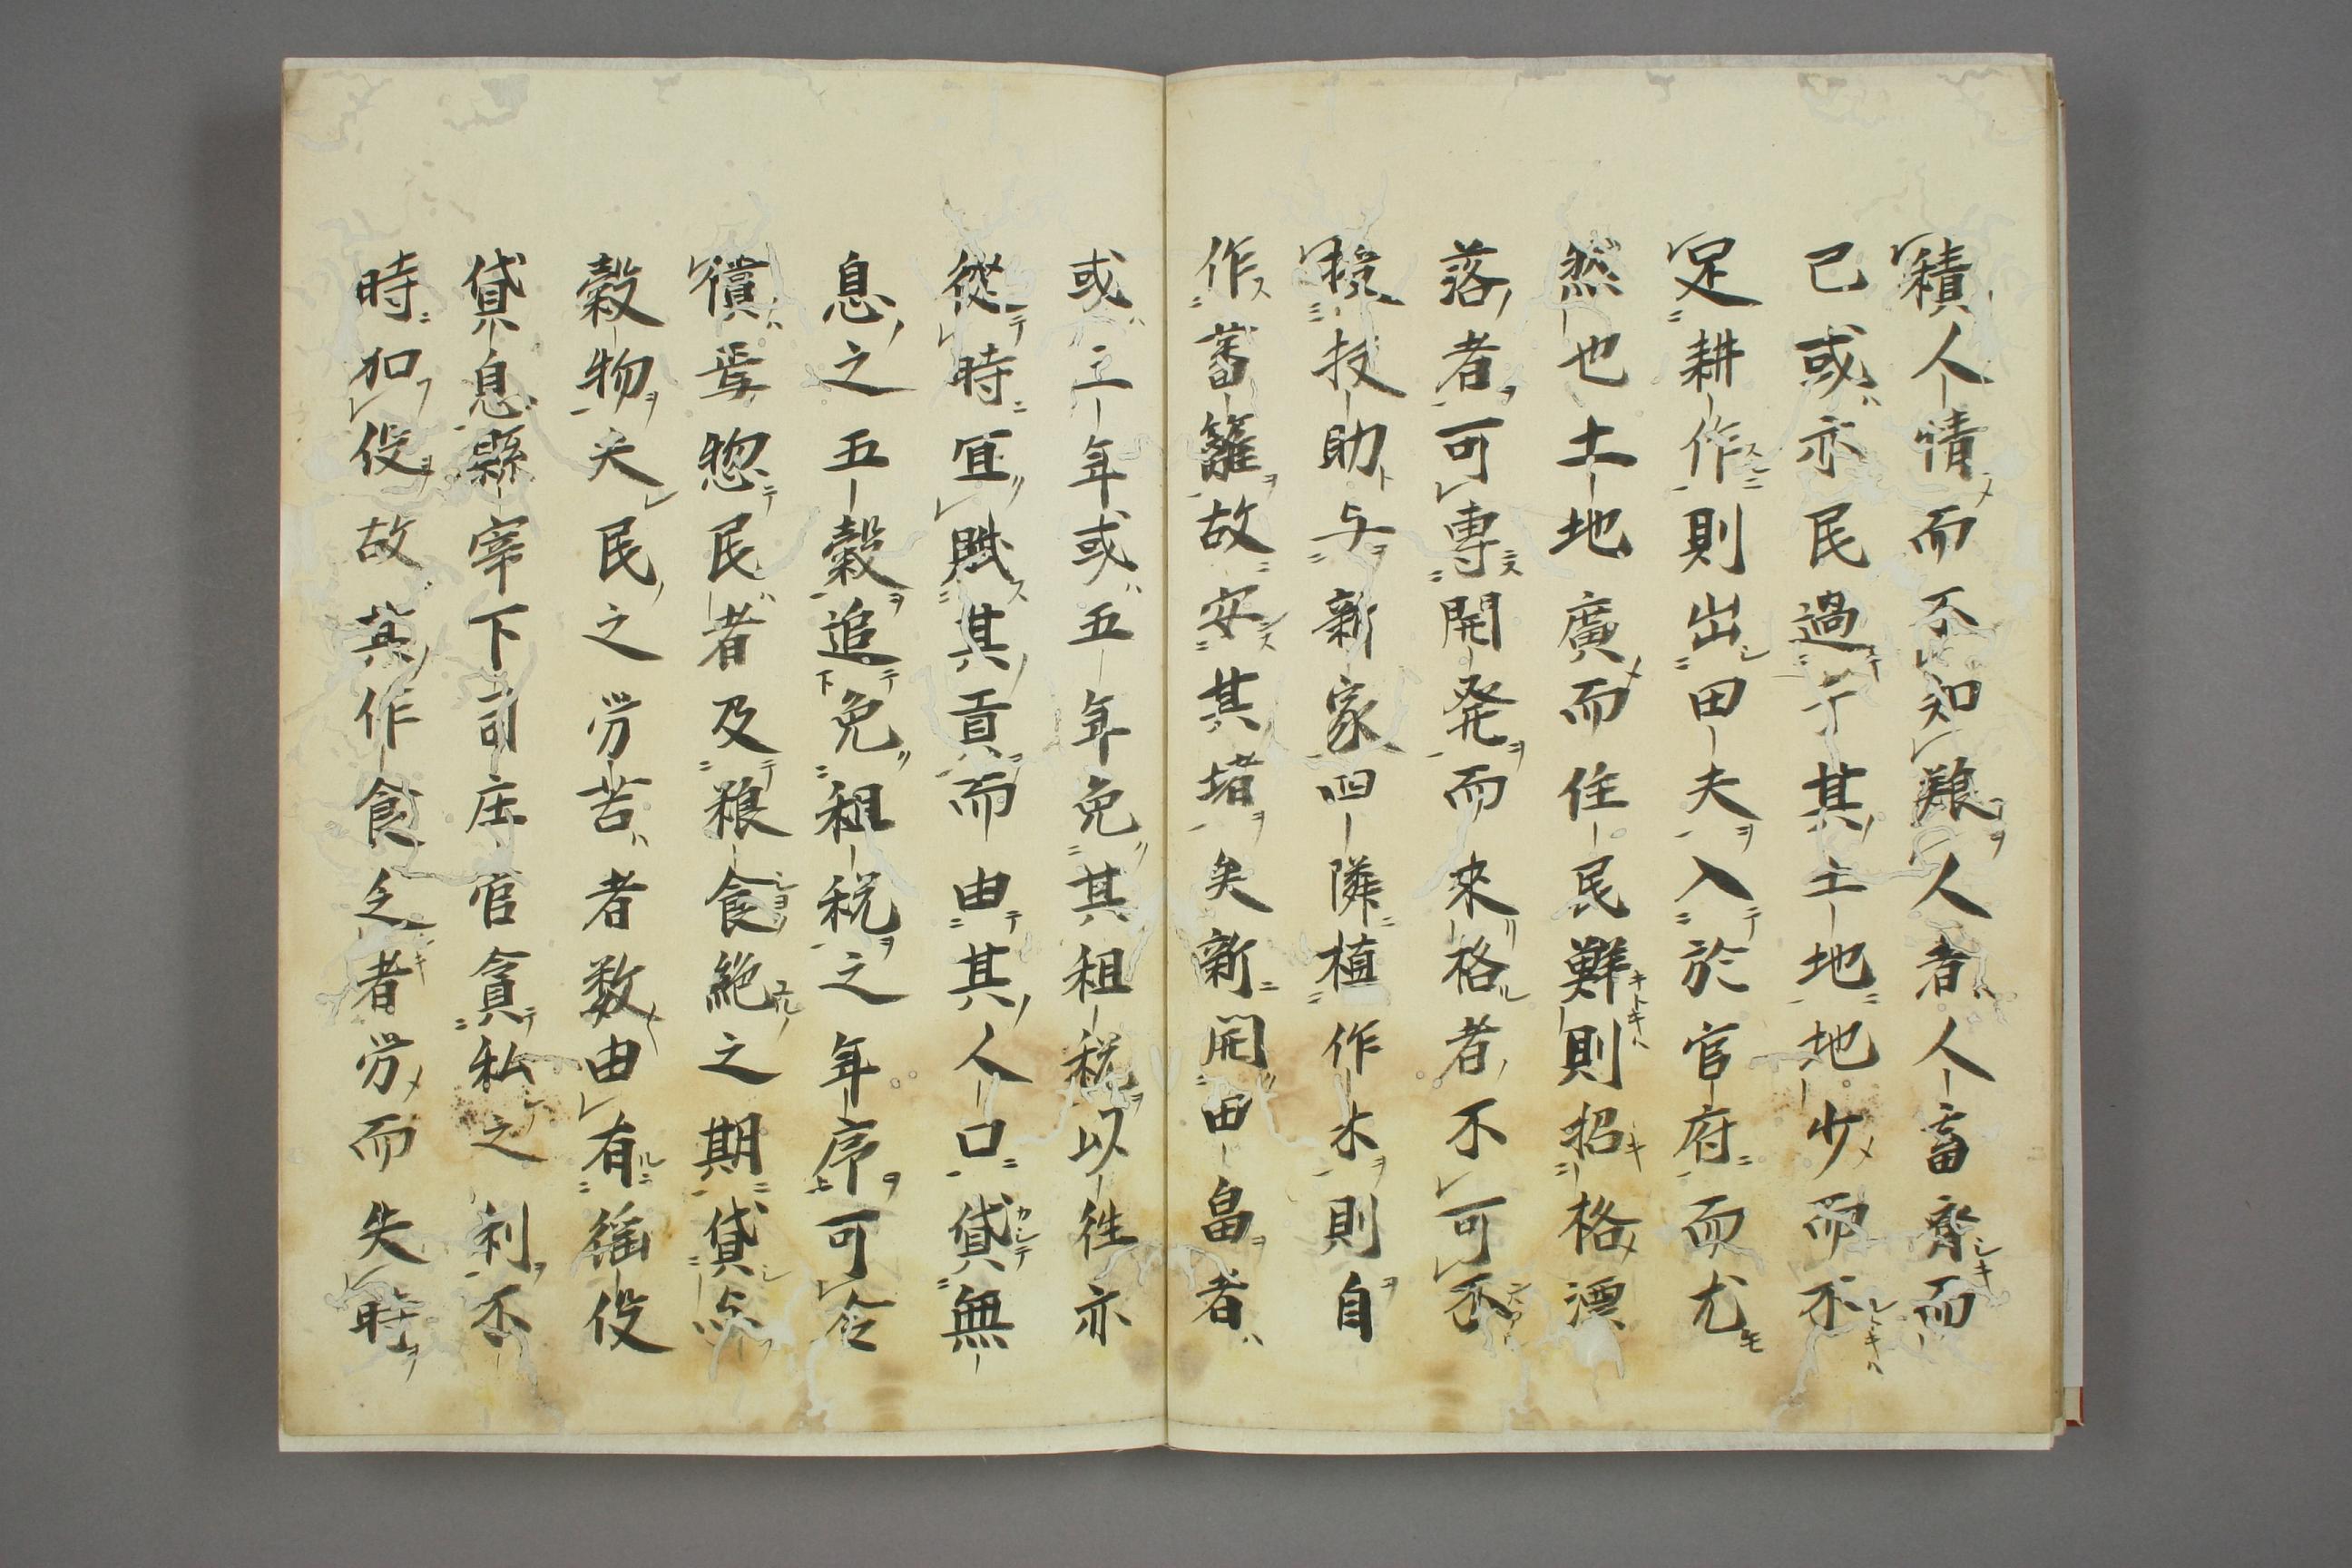 積人情而不知艱人者人畜齊而
已或亦民過于其土地地少而不
足耕作則出田夫入於官府而尤
然也土地廣而住民鮮則招格漂
落者可專開発而来格者不可不
投助与新家四隣植作木則自
作蕃籬故安其堵矣新開田畠者
或三年或五年免其租税以往亦
從時宜賦其貢而由其人口貸無
息之五穀追免租税之年序可令
償焉惣民者及粮食絶之期貸与
穀物夫民之労苦者数由有徭役
貸息縣宰下司庄官貪私之利不
時加役故其作食乏者労而失時